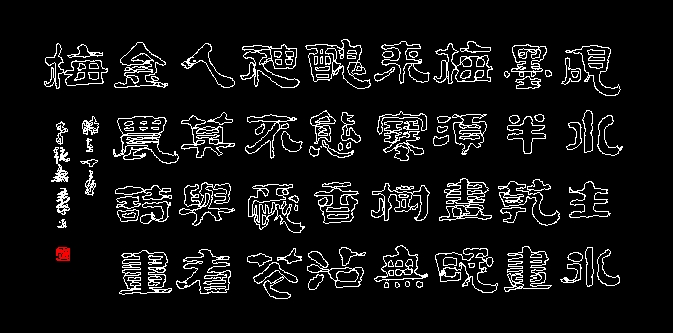 硯水生冰
墨半乾畫
梅須畫晚
來寒樹無
醜態香沾
袖不愛花
人莫與看
金農詩畫
梅